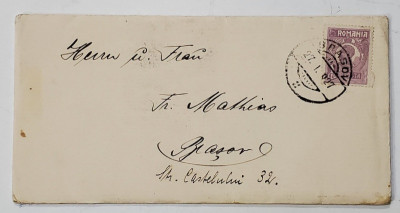 ROMANIA
BRASOV
Herrn u. Frau
Fr. Mathias
Brașov
Str. Castelului 32.